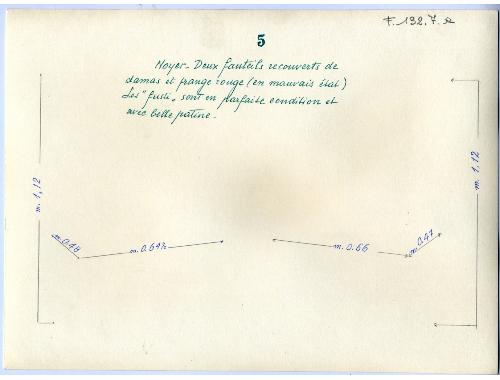 F. 132.7.a
5
Noyer - Deux fauteils recouverts de
damas et frange rouge (en mauvais état)
Les "fusts" sont en parfaite condition et
avec belle patine -
m. 1,12
m. 1,12
m. 0.48
m. 0.64½
m. 0.66
m. 0.47